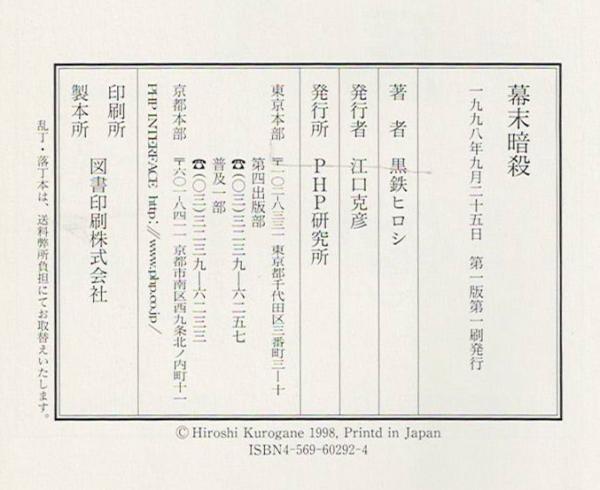 幕末暗殺
一九九八年九月二十五日　第一版第一刷発行
著　者　黒鉄ヒロシ
発行者　江口克彦
発行所　PHP研究所
東京本部　〒一〇二‐八三三一　東京都千代田区三番町三―十
第四出版部
☎(〇三)三二三九―六二五七
普及一部
☎(〇三)三二三九―六二三三
京都本部　〒六〇一‐八四一一　京都市南区西九条北ノ内町十一
PHP INTERFACE　http://www.php.co.jp/
印刷所
製本所　図書印刷株式会社
乱丁・落丁本は、送料弊所負担にてお取替えいたします。
© Hiroshi Kurogane 1998, Printd in Japan
ISBN4-569-60292-4